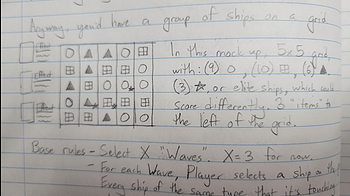 Anyway, you'd have a group of ships on a grid.
Effect
In this mock up, 5x5 grid,
with: (9) ○, (10) ⊞, (3) ▲
Effect
(3) ☆ or elite ships, which could
score differently. 3 "items" to
Effect
the left of the grid.
Base rules - Select X "Waves". X=3 for now.
- For each Wave, Player selects a ship on the
Every ship of the same type that it's touching